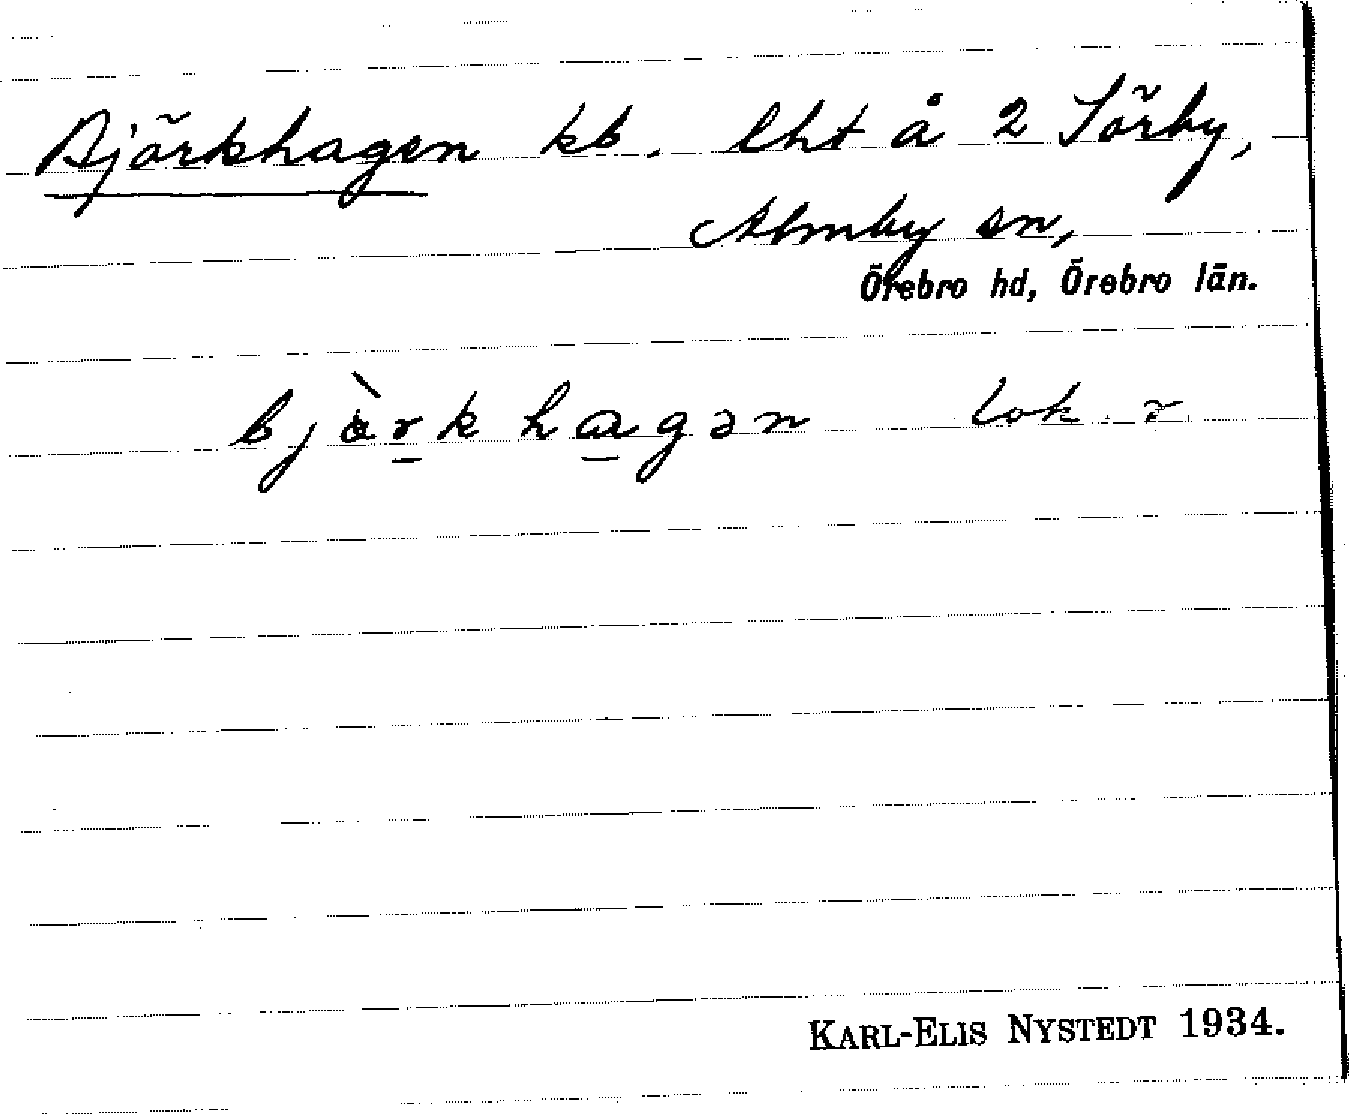 Björkhagen kb. lht å 2 Sörby,
Almby sn,
Örebro hd, Örebro län.
bjò̱rkhagən lok r
KARL-ELIS NYSTEDT 1934.